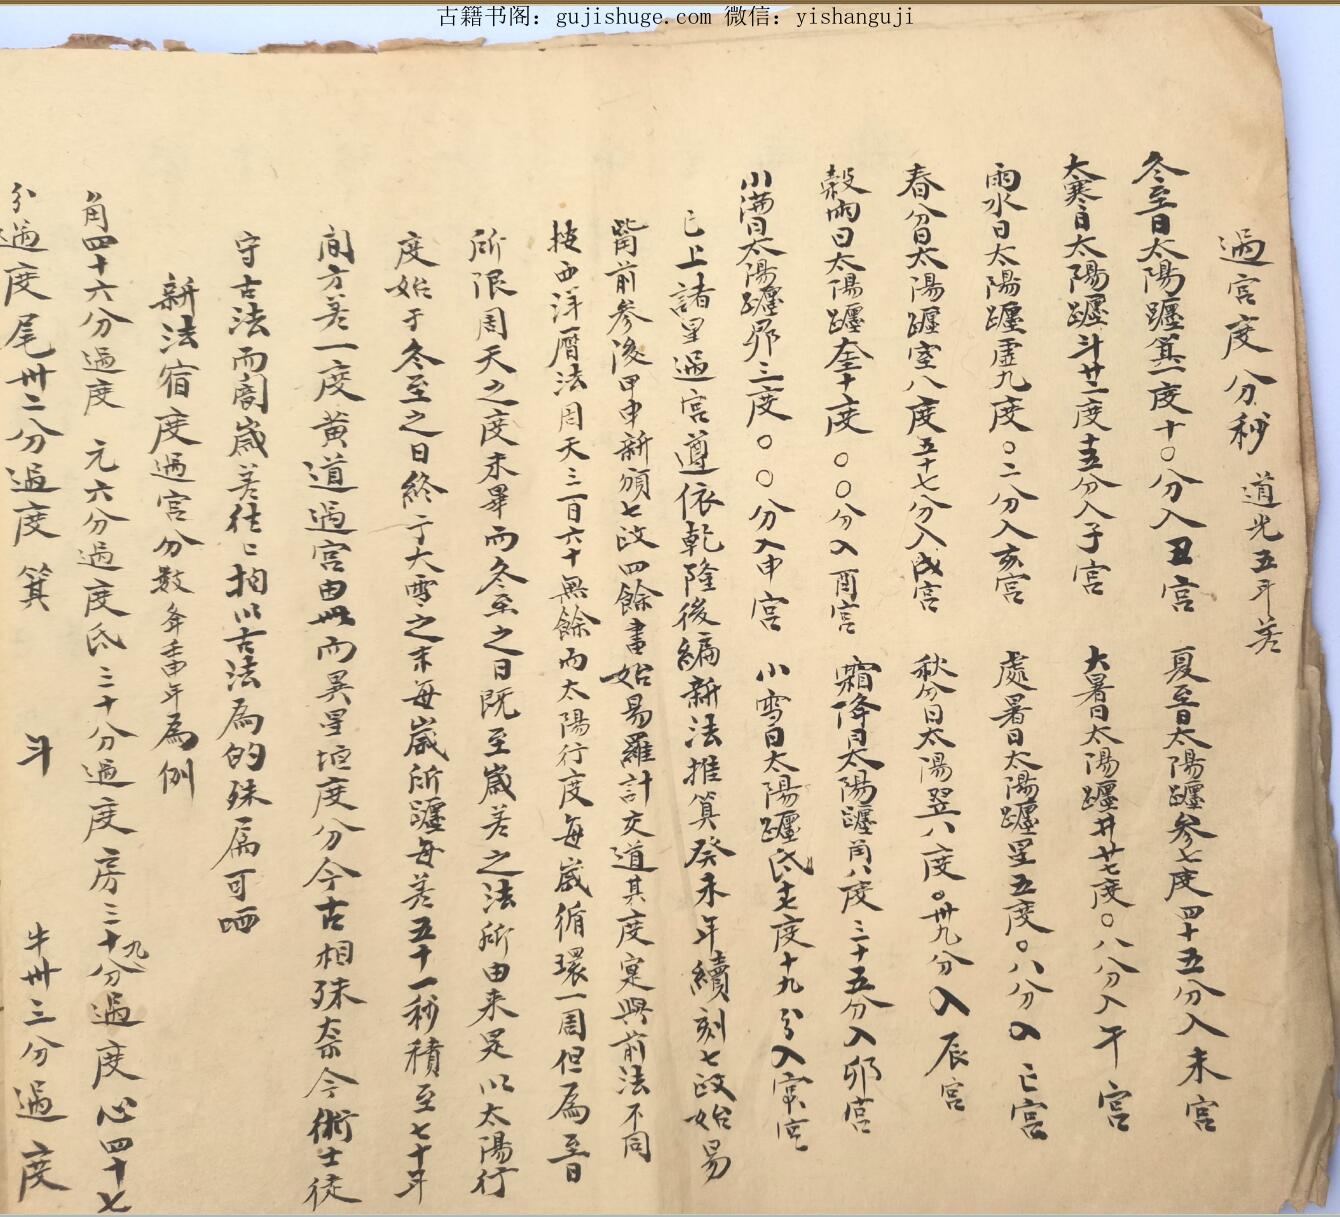 古籍书阁：gujishuge.com 微信：yishanguji
過宮度分秒 道光五年差
冬至日太陽躔箕一度十〇分入丑宮 夏至日太陽躔參七度四十五分入未宮
大寒日太陽躔斗廿二度十五分入子宮 大暑日太陽躔井廿七度〇八分入午宮
雨水日太陽躔虛九度〇二分入亥宮 處暑日太陽躔星五度〇八分入巳宮
春分日太陽躔室八度五十七分入戌宮 秋分日太陽翌八度〇卅九分入辰宮
穀雨日太陽躔奎十度〇〇分入酉宮 霜降日太陽躔角八度三十五分入卯宮
小滿日太陽躔昴三度〇〇分入申宮 小雪日太陽躔氐十七度十九分入寅宮
已上諸星過宮遵依乾隆後編新法推算癸未年續刻七政始易
觜前參後甲申新頒七政四餘書始易羅計交道其度寔與前法不同
按西洋曆法周天三百六十無餘而太陽行度每歲循環一周但為至日
所限周天之度未畢而冬至之日既至歲差之法所由来是以太陽行
度始于冬至之日終于大雪之末每歲所躔每差五十一秒積至七十年
間方差一度黃道過宮由此而異星垣度分今古相殊奈今術士徒
守古法而闇歲差往〻拘以古法為的殊屬可哂
新法宿度過宮分數 壬申年為例
角四十六分過度 元六分過度氐三十分過度房三十九分過度心四十七
分過度尾卅二分過度箕 斗 牛卅三分過度